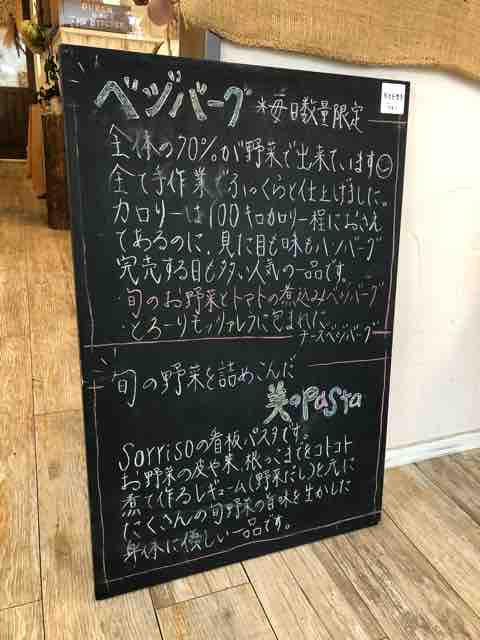 ベジバーグ ※毎日数量限定
全体の70%が野菜で出来ています
全て手作業でふっくらと仕上げました。
カロリーは100キロカロリー程におさえ
てあるのに、見た目も味もハンバーグ
完売する日も多い人気の一品です。
・旬のお野菜とトマトの煮込みベジバーグ
・とろーりモッツァレラに包まれた
チーズベジバーグ
旬の野菜を詰めこんだ
美のPasta
Sorrisoの看板パスタです。
お野菜の皮や葉、根っこまでをコトコト
煮て作るレギューム(野菜だし)を元に
たくさんの旬野菜の旨味を生かした
身体に優しい一品です。